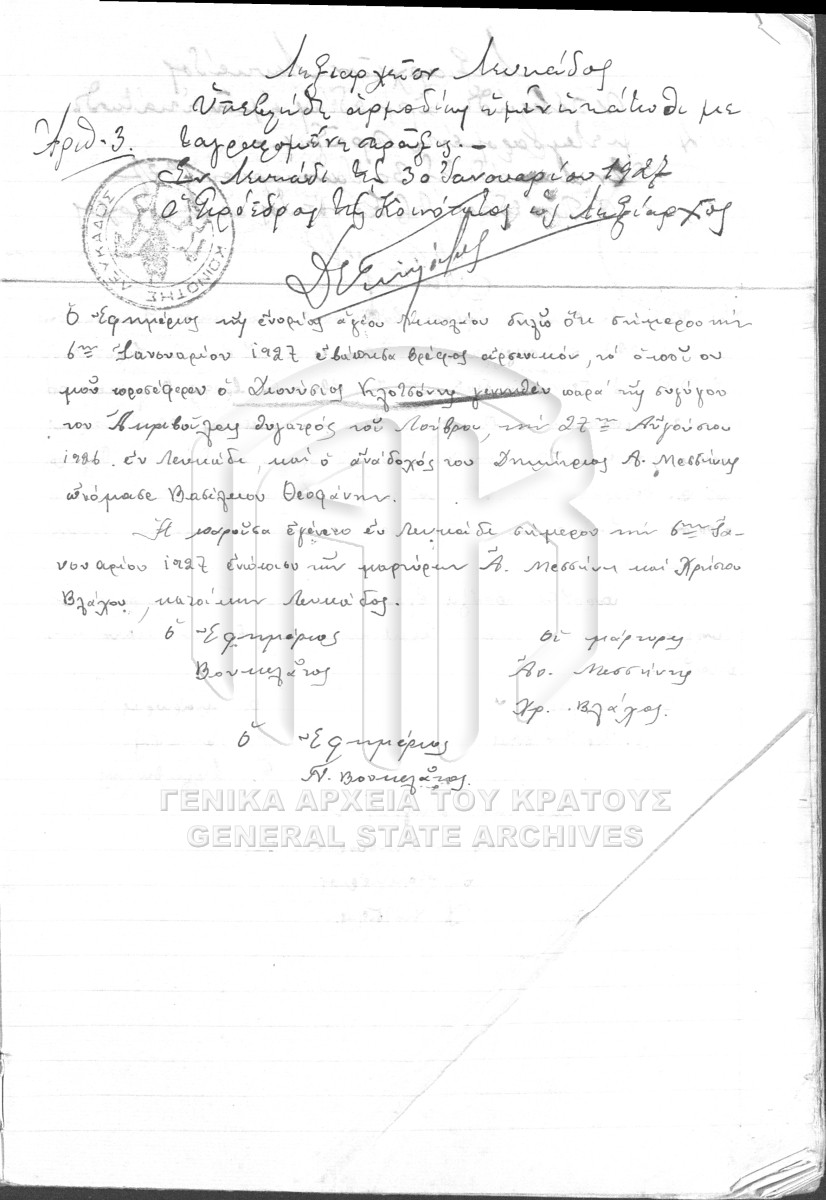 Ληξιαρχεῖον Λευκάδος
Ὑπεβλήθη ἁρμοδίως ἡμῖν ἡ κάτωθι με
Ἀριθ. 3.
ταγραφομένη πρᾶξις. —
Ἐν Λευκάδι τῇ 30 Ἰανουαρίου 1927
Ὁ Πρόεδρος τῆς Κοινότητος ὡς Ληξίαρχος
ΚΟΙΝΟΤΗΣ ΛΕΥΚΑΔΟΣ
Ὁ Ἐφημέριος τῆς ἐνορίας ἁγίου Νικολάου δηλῶ ὅτι σήμερον τὴν
6ην Ἰανουαρίου 1927 ἐβάπτισα βρέφος ἀρσενικόν, τὸ ὁποῖον
μοῦ προσέφερεν ὁ Διονύσιος γεννηθὲν παρὰ τῆς συζύγου
του Ἀκριβούλας θυγατρὸς τοῦ Λούβρου, τὴν 27ην Αὐγούστου
1926 ἐν Λευκάδι, καὶ ὁ ἀνάδοχός του Δημήτριος Α. Μεσσήνης
ὠνόμασε Βασίλειον Θεοφάνην.
Ἡ παροῦσα ἐγένετο ἐν Λευκάδι σήμερον τὴν 6ην Ἰα-
νουαρίου 1927 ἐνώπιον τῶν μαρτύρων Ἀ. Μεσσήνη καὶ Χρήστου
Βλάχου, κατοίκων Λευκάδος.
Ὁ Ἐφημέριος
Οἱ μάρτυρες
Βουκελᾶτος
Ἀρ. Μεσσήνης
Χρ. Βλάχος.
Ὁ Ἐφημέριος
Π. Βουκελᾶτος.
ΓΕΝΙΚΑ ΑΡΧΕΙΑ ΤΟΥ ΚΡΑΤΟΥΣ
GENERAL STATE ARCHIVES